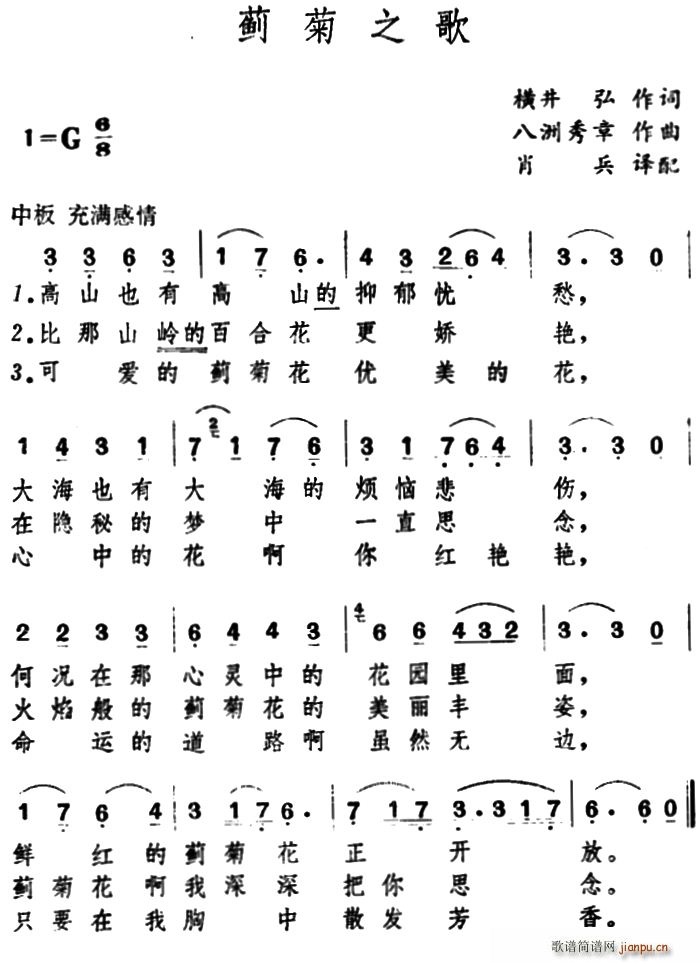 蓟菊之歌
横井 弘 作词
1=G 6/8
八洲秀章 作曲
肖 兵 译配
中板 充满感情
3 3 6 3 | 1 7 6. | 4 3 2 6 4 | 3. 3 0 |
1.高山也有高山的抑郁忧愁,
2.比那山岭的百合花更娇艳,
3.可爱的蓟菊花优美的花,
1 4 3 1 | 7 2 1 7 6 | 3 1 7 6 4 | 3. 3 0 |
大海也有大海的烦恼悲伤,
在隐秘的梦中一直思念,
心中的花啊你红艳艳,
2 2 3 3 | 6 4 4 3 | 4 6 6 4 3 2 | 3. 3 0 |
何况在那心灵中的花园里面,
火焰般的蓟菊花的美丽丰姿,
命运的道路啊虽然无边,
1 7 6 4 | 3 1 7 6. | 7 1 7 3. 3 1 7 | 6. 6 0 ‖
鲜红的蓟菊花正开放。
蓟菊花啊我深深把你思念。
只要在我胸中散发芳香。
歌谱简谱网 jianpu.cn